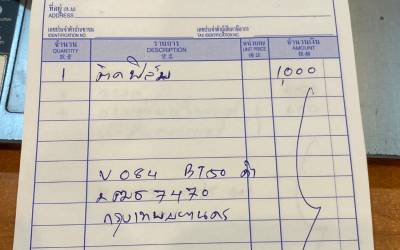 ที่อยู่
ADDRESS
เลขประจำตัวประชาชน
IDENTIFICATION NO.
เลขประจำตัวผู้เสียภาษีอากร
TAX IDENTIFICATION NO.
จำนวน รายการ หน่วยละ จำนวนเงิน
QUANTITY DESCRIPTION UNIT PRICE AMOUNT
1 ติดฟิล์ม 1,000
V 084 BT50 ดำ
7470
กรุงเทพมหานคร